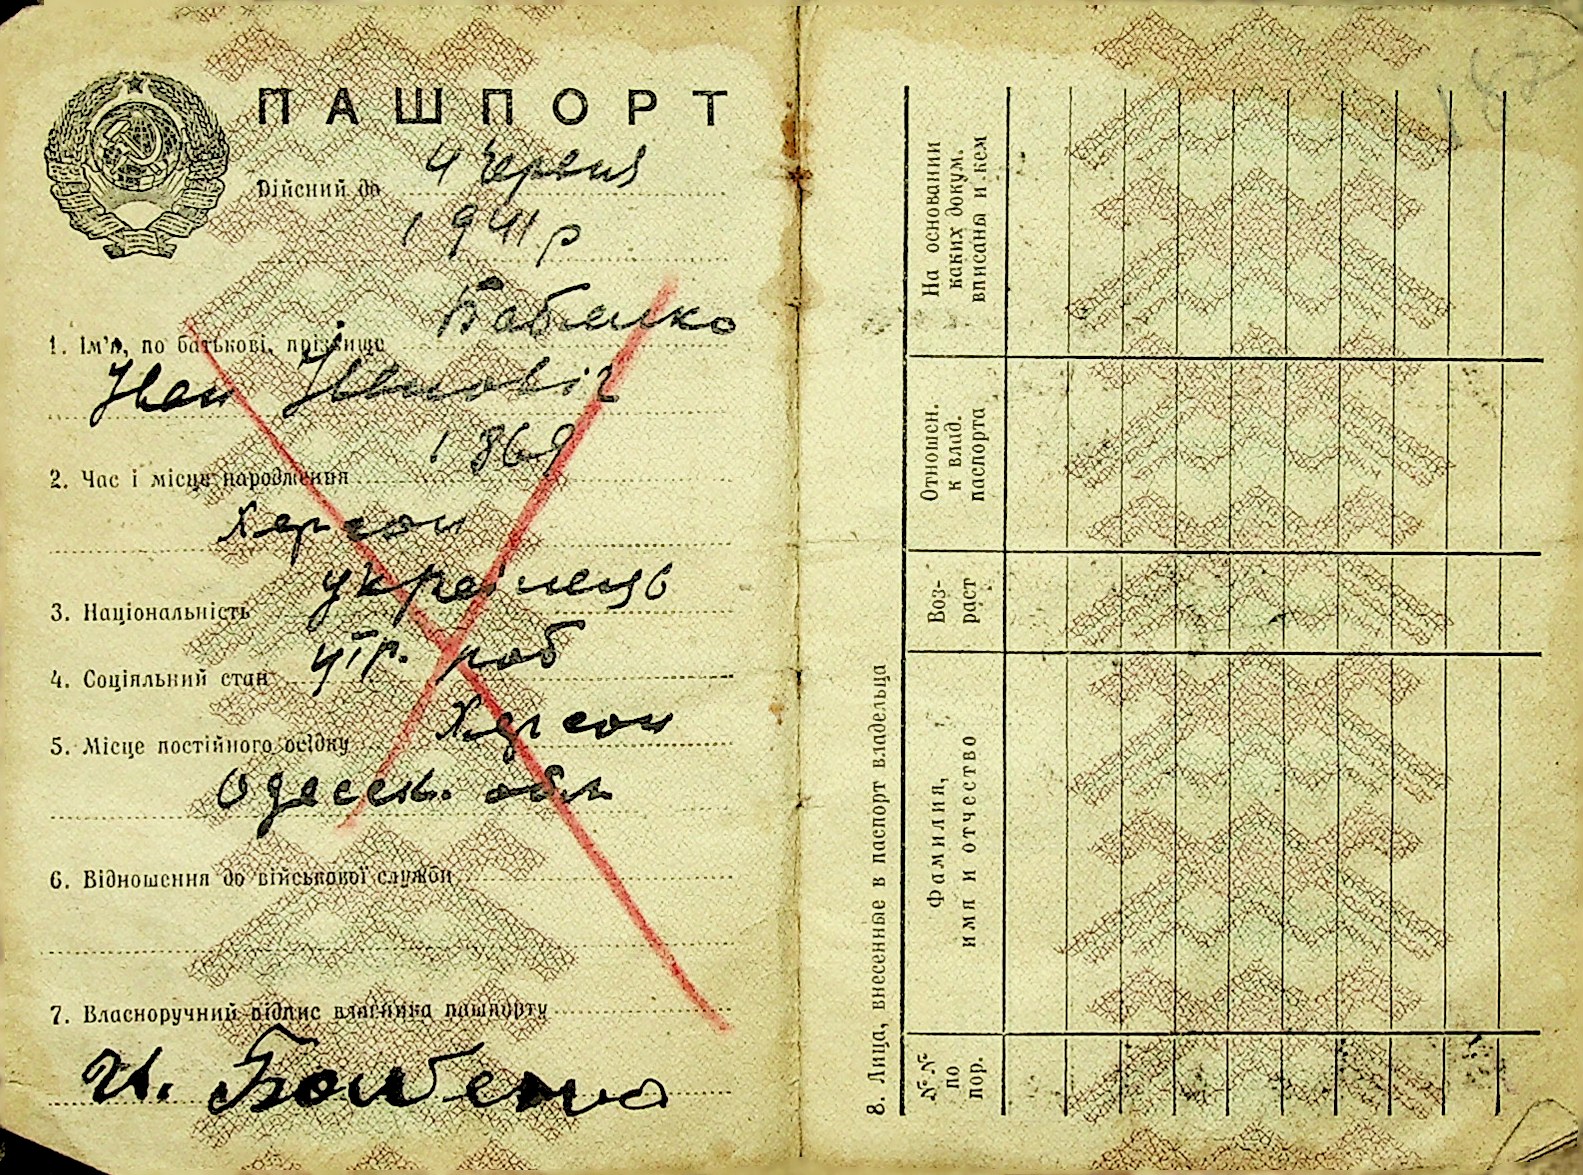 ПАШПОРТ
Дійсний до 4 червня
1941 р
1. Ім'я, по батькові, прізвище Бабенко
Іван Іванович
2. Час і місце народження 1869
Херсон
3. Національність українець
4. Соціяльний стан роб
5. Місце постійного осідку Херсон
Одесск. обл
6. Відношення до військової служби
7. Власноручний підпис власника пашпорту
И. Бабенко
182
8. Лица, внесенные в паспорт владельца
№№ по пор.
Фамилия, имя и отчество
Воз-
раст
Отношен. к влад. паспорта
На основании каких докум. вписаны и кем